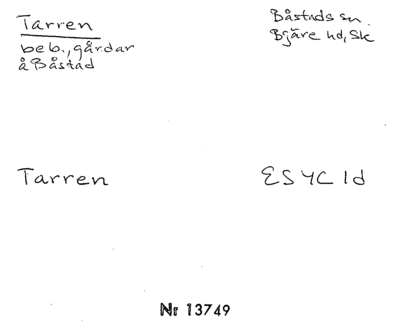 Tarren
Båstads sn.
beb., gårdar
Bjäre hd, Sk
å Båstad
Tarren
ES 4C 1d
Nr 13749